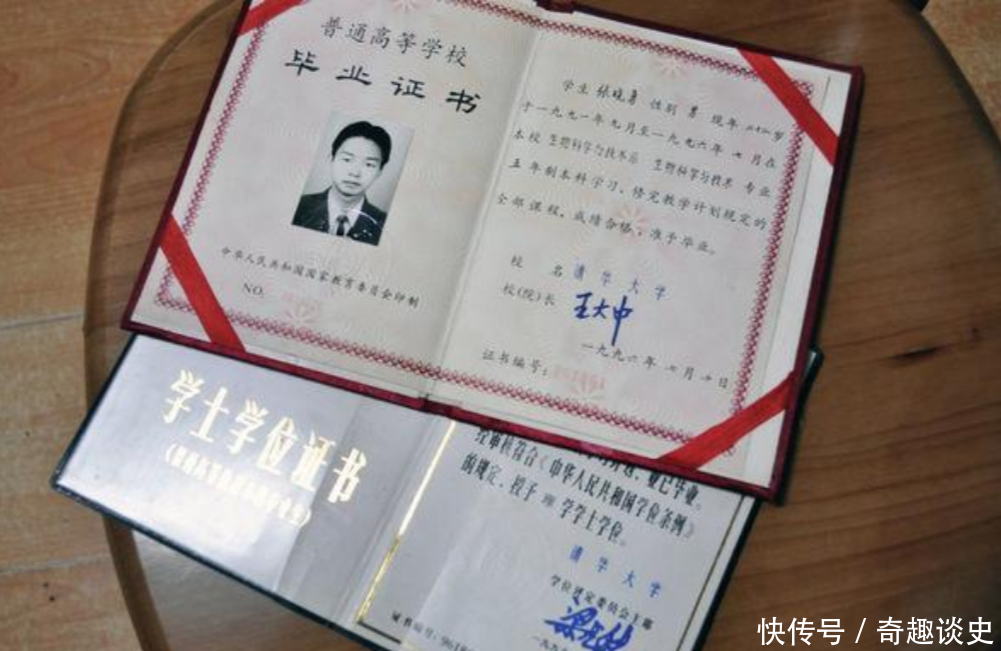 普通高等学校
毕业证书
中华人民共和国国家教育委员会印制
NO.
学生 张晓勇 性别 男 现年 二十二岁
于一九九一年九月至一九九六年 七月在
本校 生物科学与技术系 生物科学与技术 专业
五 年制本科学习，修完教学计划规定的
全部课程，成绩合格，准予毕业。
校 名 清华大学
校(院)长 王大中
一九九六年 七月 十日
证书编号：
学士学位证书
业已毕业。
经审核符合《中华人民共和国学位条例》
的规定，授予 理 学学士学位。
清华大学
学位评定委员会主席
一九九
证书编号：961
快传号 / 奇趣谈史